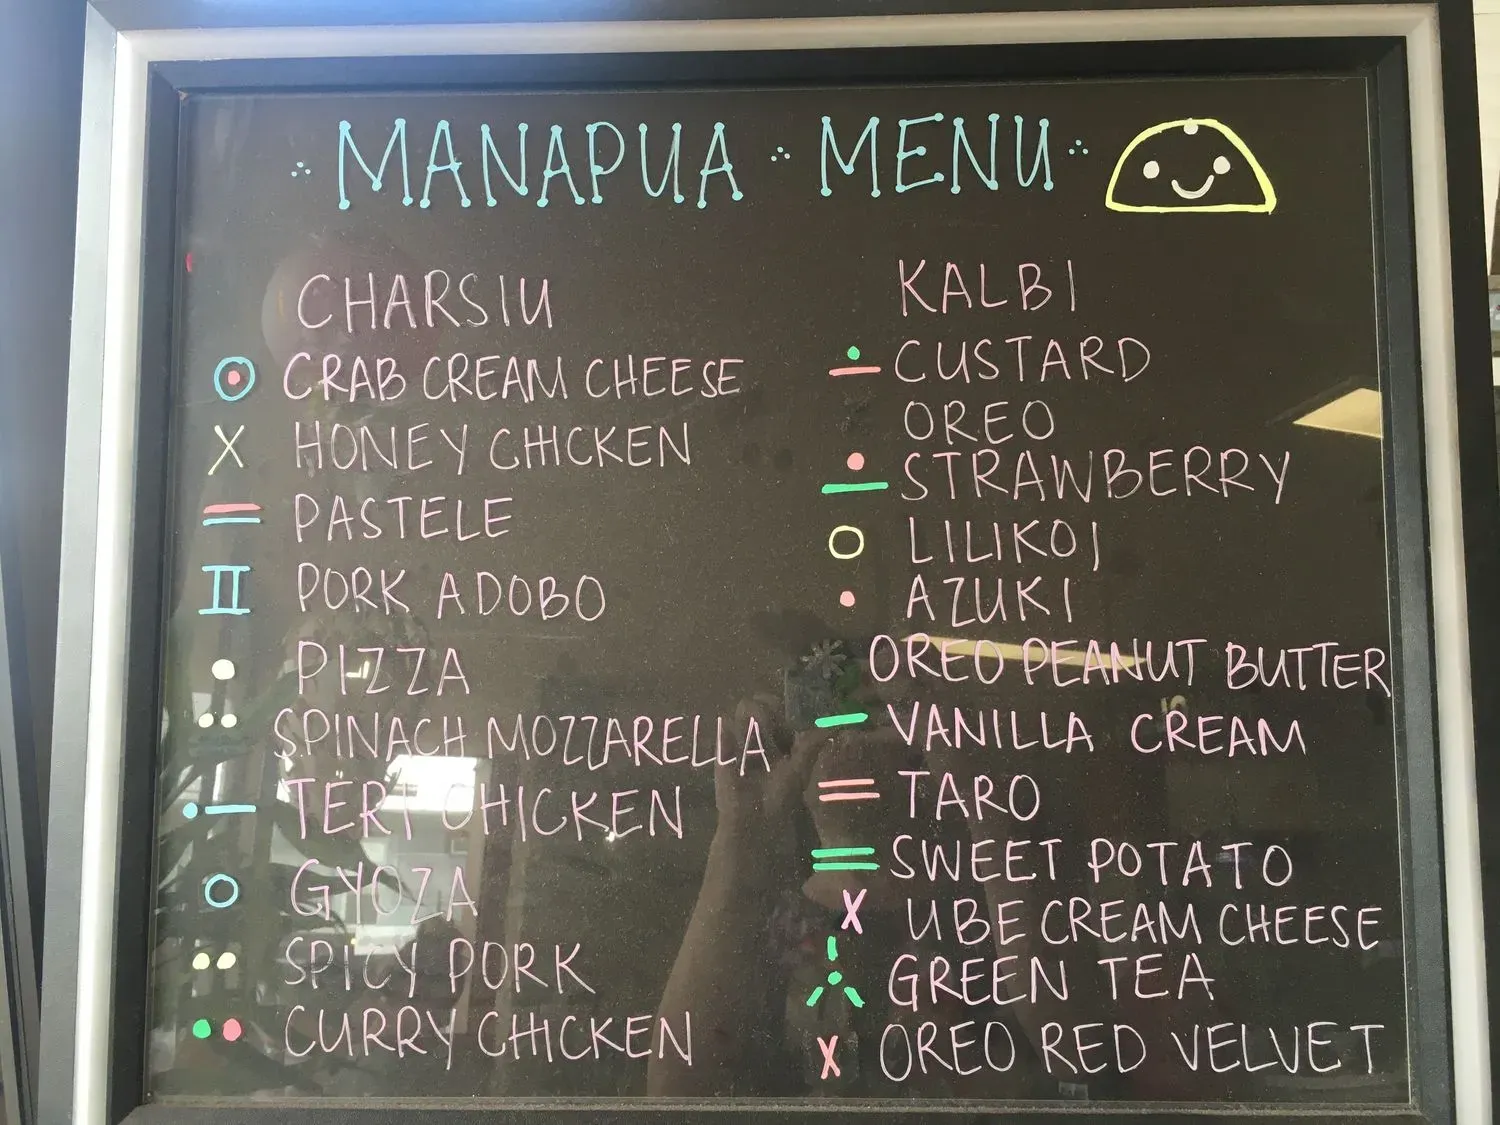 MANAPUA MENU
CHARSIU
CRAB CREAM CHEESE
HONEY CHICKEN
PASTELE
PORK ADOBO
PIZZA
SPINACH MOZZARELLA
TERI CHICKEN
GYOZA
SPICY PORK
CURRY CHICKEN
KALBI
CUSTARD
OREO
STRAWBERRY
LILIKOI
AZUKI
OREO PEANUT BUTTER
VANILLA CREAM
TARO
SWEET POTATO
UBE CREAM CHEESE
GREEN TEA
OREO RED VELVET